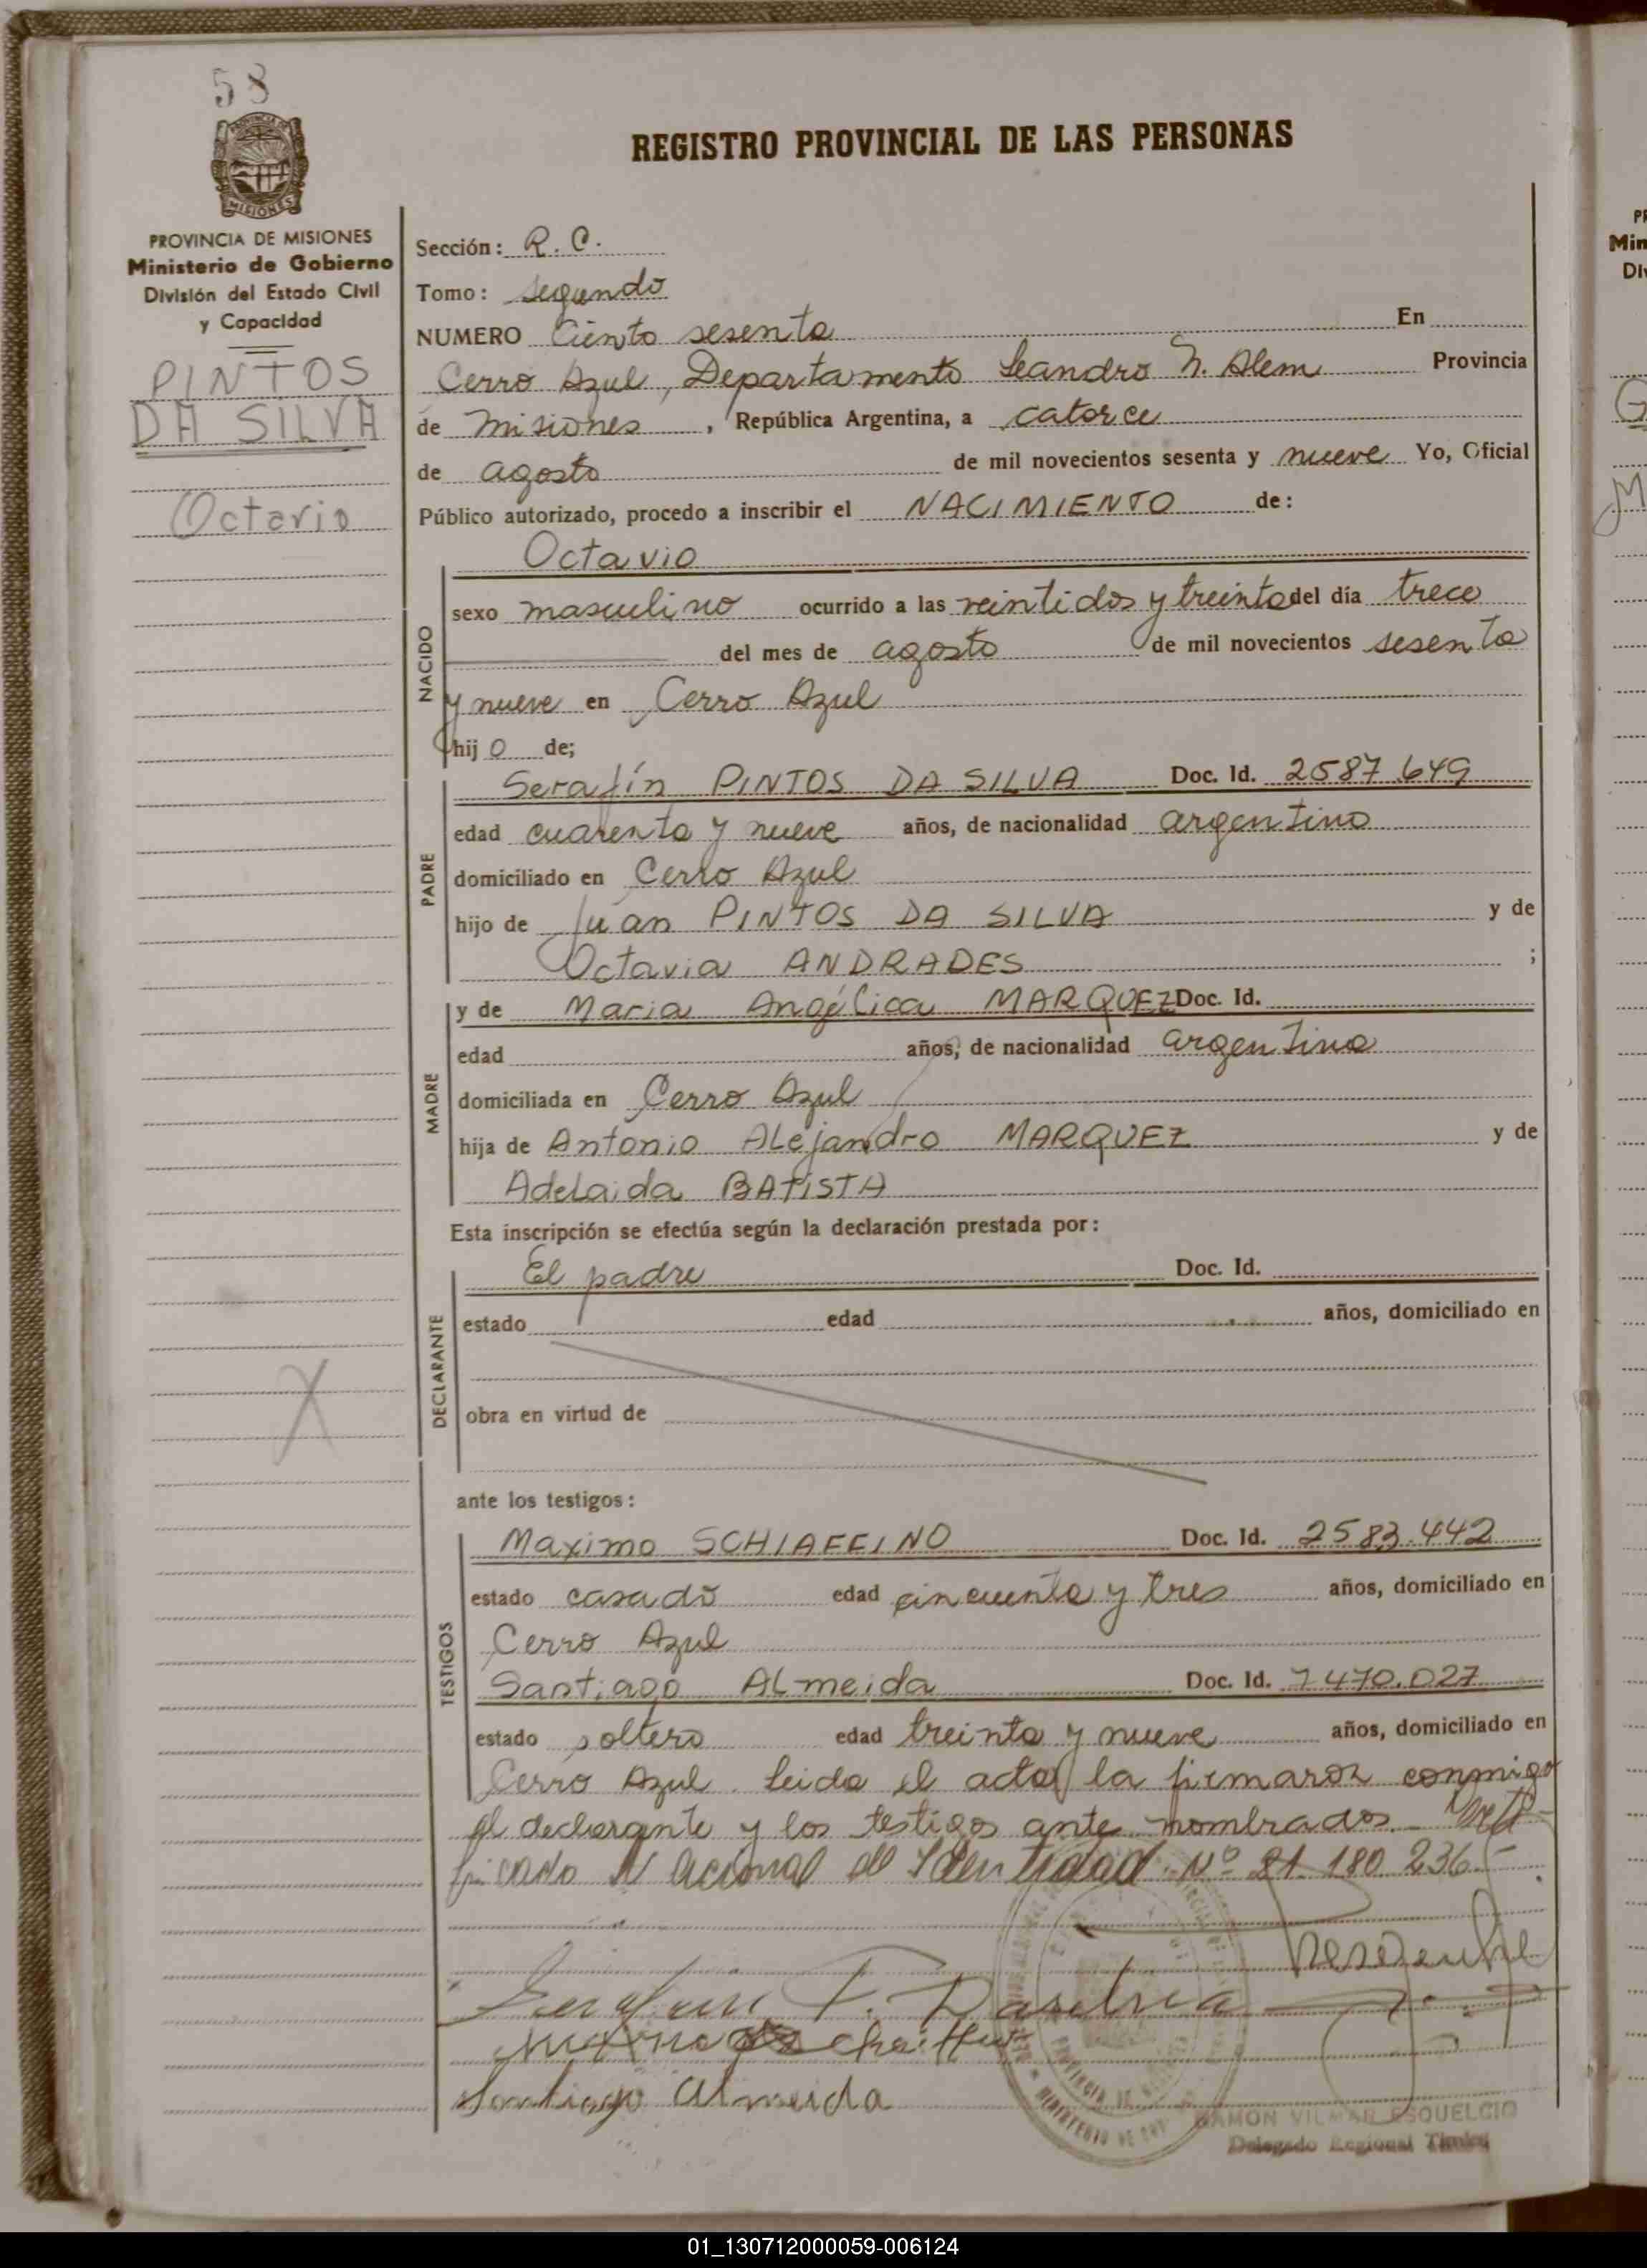 58
REGISTRO PROVINCIAL DE LAS PERSONAS
PROVINCIA DE MISIONES
MISIONES
PROVINCIA DE MISIONES
Ministerio de Gobierno
División del Estado Civil
y Capacidad
PINTOS
DA SILVA
Octavio
Sección: R. C.
Tomo: segundo
NUMERO Ciento sesenta En
Cerro Azul, Departamento Leandro N. Alem Provincia
de Misiones, República Argentina, a catorce
de agosto de mil novecientos sesenta y nueve Yo, Oficial
Público autorizado, procedo a inscribir el NACIMIENTO de:
NACIDO
Octavio
sexo masculino ocurrido a las veintidos y treinta del día trece
del mes de agosto de mil novecientos sesenta
y nueve en Cerro Azul
hijo de;
PADRE
Serafín PINTOS DA SILVA Doc. Id. 2587.649
edad cuarenta y nueve años, de nacionalidad argentino
domiciliado en Cerro Azul
hijo de Juan PINTOS DA SILVA y de
Octavia ANDRADES ;
MADRE
y de Maria Angélica MARQUEZ Doc. Id.
edad años, de nacionalidad argentina
domiciliada en Cerro Azul
hija de Antonio Alejandro MARQUEZ y de
Adelaida BATISTA
Esta inscripción se efectúa según la declaración prestada por:
DECLARANTE
El padre Doc. Id.
estado edad años, domiciliado en
obra en virtud de
X
ante los testigos:
TESTIGOS
Maximo SCHIAFFINO Doc. Id. 2583.442
estado casado edad cincuenta y tres años, domiciliado en
Cerro Azul
Santiago ALmeida Doc. Id. 7.470.027
estado soltero edad treinta y nueve años, domiciliado en
Cerro Azul. Leida el acta la firmaron conmigo
el declarante y los testigos ante nombrados.
Nacional de Identidad Nº 21.180.236
Serafin P. Dasilva
Santiago Almeida
RAMON VILMAR ESQUELCIO
Delegado Regional Titular
PR
Min
Div
G
M
01_130712000059-006124